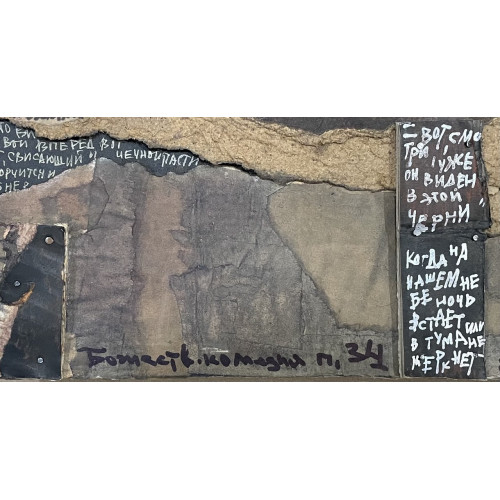 ВОЙ ВПЕРЕД ВГ
СВИСАЮЩИЙ И ЦЕЧНОЙ ПАСТИ
ОРЧИТСЯ И
- ВОТ СМО
ТРИ, УЖЕ
ОН ВИДЕН
В ЭТОЙ
ЧЕРНИ,
КОГДА НА
НАШЕМ НЕ
БЕ НОЧЬ
ВСТАЕТ ИЛИ
В ТУМАНЕ
МЕРКНЕТ
Божеств. комедия п. 34